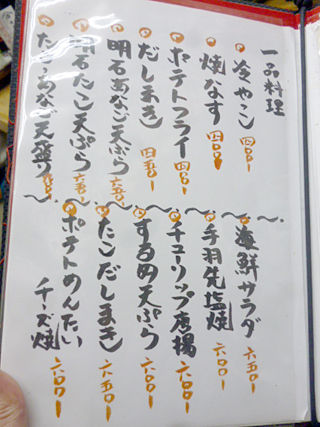 一品料理
冷やっこ 四〇〇ー
焼なす 四〇〇ー
ポテトフライ 四〇〇ー
だしまき 四五〇ー
明石あなご天ぷら 六五〇ー
明石たこ天ぷら 六五〇ー
たこあなご天盛り
海鮮サラダ 六五〇ー
手羽先塩焼 六〇〇ー
チューリップ唐揚 六〇〇ー
するめ天ぷら 六〇〇ー
たこだしまき 六五〇ー
ポテトめんたい
チーズ焼 六〇〇ー